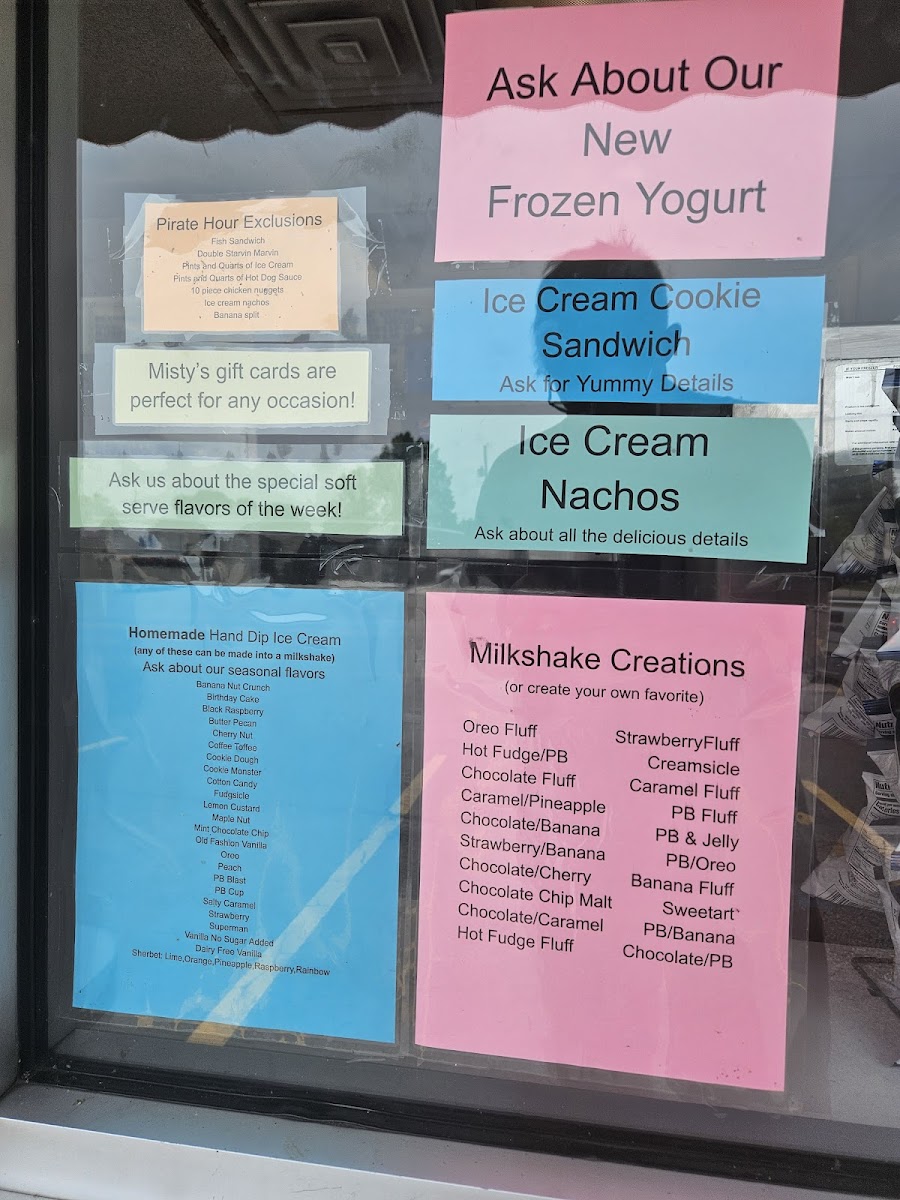 Ask About Our
New
Frozen Yogurt
Pirate Hour Exclusions
Fish Sandwich
Double Starvin Marvin
Pints and Quarts of Ice Cream
Pints and Quarts of Hot Dog Sauce
10 piece chicken nuggets
Ice cream nachos
Banana split
Ice Cream Cookie
Sandwich
Ask for Yummy Details
Misty's gift cards are
perfect for any occasion!
Ice Cream
Nachos
Ask about all the delicious details
Ask us about the special soft
serve flavors of the week!
Homemade Hand Dip Ice Cream
(any of these can be made into a milkshake)
Ask about our seasonal flavors
Banana Nut Crunch
Birthday Cake
Black Raspberry
Butter Pecan
Cherry Nut
Coffee Toffee
Cookie Dough
Cookie Monster
Cotton Candy
Fudgsicle
Lemon Custard
Maple Nut
Mint Chocolate Chip
Old Fashion Vanilla
Oreo
Peach
PB Blast
PB Cup
Salty Caramel
Strawberry
Superman
Vanilla No Sugar Added
Dairy Free Vanilla
Sherbet: Lime,Orange,Pineapple,Raspberry,Rainbow
Milkshake Creations
(or create your own favorite)
Oreo Fluff
Hot Fudge/PB
Chocolate Fluff
Caramel/Pineapple
Chocolate/Banana
Strawberry/Banana
Chocolate/Cherry
Chocolate Chip Malt
Chocolate/Caramel
Hot Fudge Fluff
StrawberryFluff
Creamsicle
Caramel Fluff
PB Fluff
PB & Jelly
PB/Oreo
Banana Fluff
Sweetart
PB/Banana
Chocolate/PB